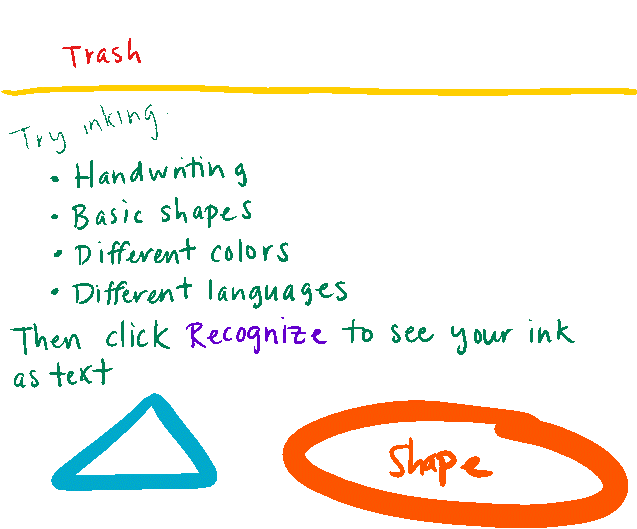 Trash
Try inking.
• Handwriting
• Basic shapes
• Different colors
• Different languages
Then click Recognize to see your ink
as text
Shape